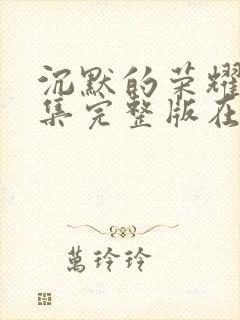 沉默的荣耀
集完整版在
萬玲玲